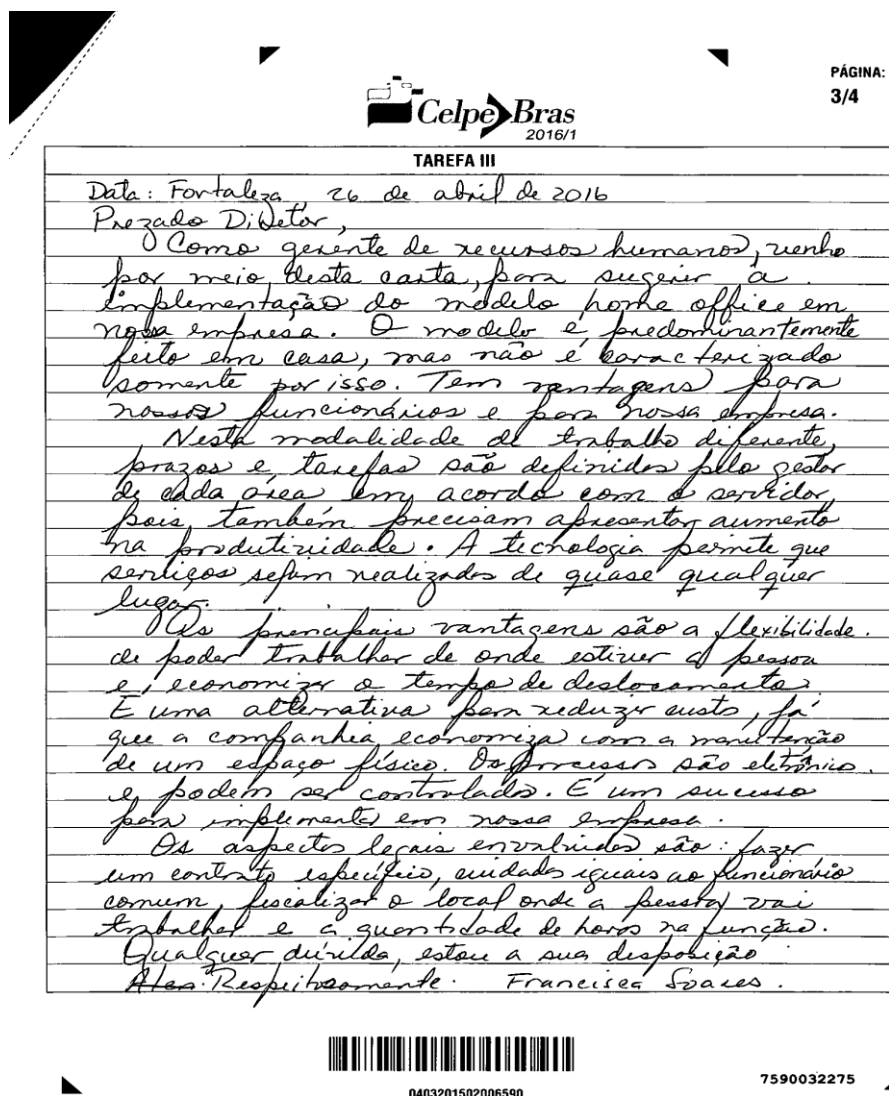 PÁGINA:
3/4
Celpe Bras
2016/1
TAREFA III
Data: Fortaleza, 26 de abril de 2016
Prezado Diretor,
Como gerente de recursos humanos, venho
por meio desta carta, para sugerir a
implementação do modelo home office em
nossa empresa. O modelo é predominantemente
feito em casa, mas não é caracterizado
somente por isso. Tem vantagens para
nossos funcionários e para nossa empresa.
Nesta modalidade de trabalho diferente,
prazos e tarefas são definidos pelo gestor
de cada área em acordo com o servidor,
pois, também precisam apresentar aumento
na produtividade. A tecnologia permite que
serviços sejam realizados de quase qualquer
lugar.
As principais vantagens são a flexibilidade.
de poder trabalhar de onde estiver a pessoa
e, economizar o tempo de deslocamento.
É uma alternativa para reduzir custo, já
que a companhia economiza com a manutenção
de um espaço físico. Os processos são eletrônico.
e, podem ser controlados. É um sucesso
para implementar em nossa empresa.
Os aspectos legais envolvidos são: fazer
um contrato específico, cuidados iguais ao funcionário
comum, fiscalizar o local onde a pessoa vai
trabalhar e a quantidade de horas na função.
Qualquer dúvida, estou a sua disposição
Respeitosamente. Francisca Soares.
0403201502006590
7590032275